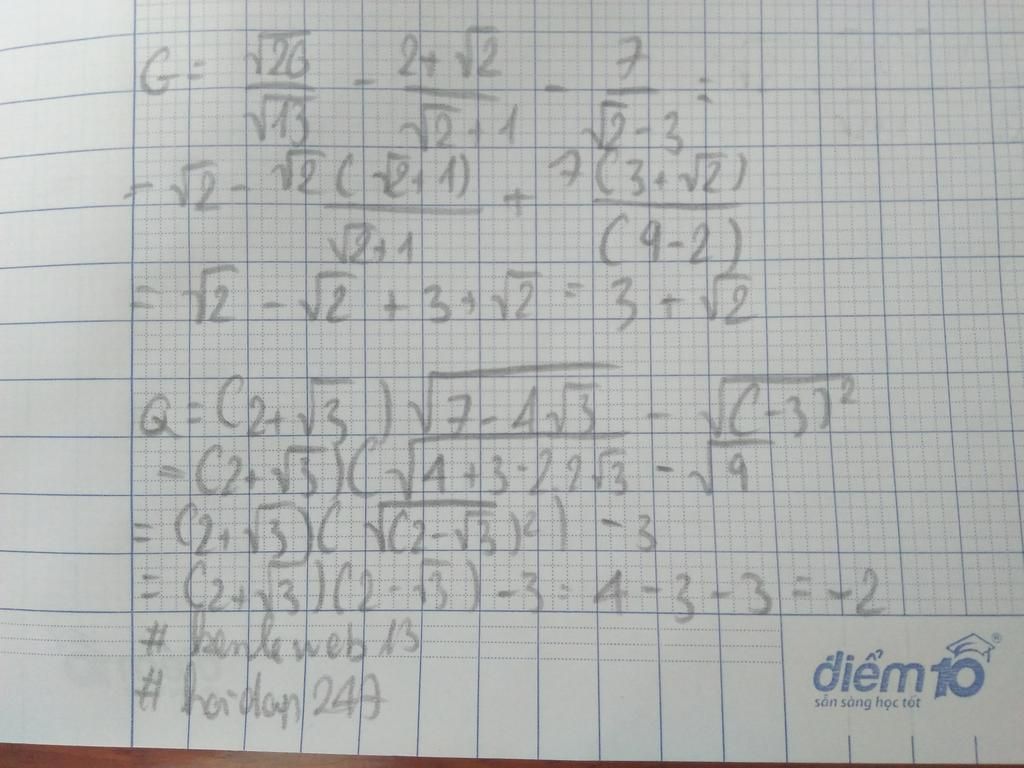 G = √26/√13 - (2+√2)/(√2+1) - 7/(√2-3) =
= √2 - √2(√2+1)/(√2+1) + 7(3+√2)/(9-2)
= √2 - √2 + 3 + √2 = 3 + √2
Q = (2+√3)√(7-4√3) - √(-3)²
= (2+√3)(√(4+3-2.2√3) - √9
= (2+√3)(√(2-√3)²) - 3
= (2+√3)(2-√3) - 3 = 4 - 3 - 3 = -2
# web 13
# hoidap 247
điểm10®
sẵn sàng học tốt